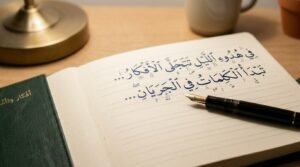 فِي هُدُوءِ اللَّيْلِ تَتَجَلَّى الْأَفْكَارُ...
تَبْدَأُ الْكَلِمَاتُ فِي الْجَرَيَانِ...
أفكار